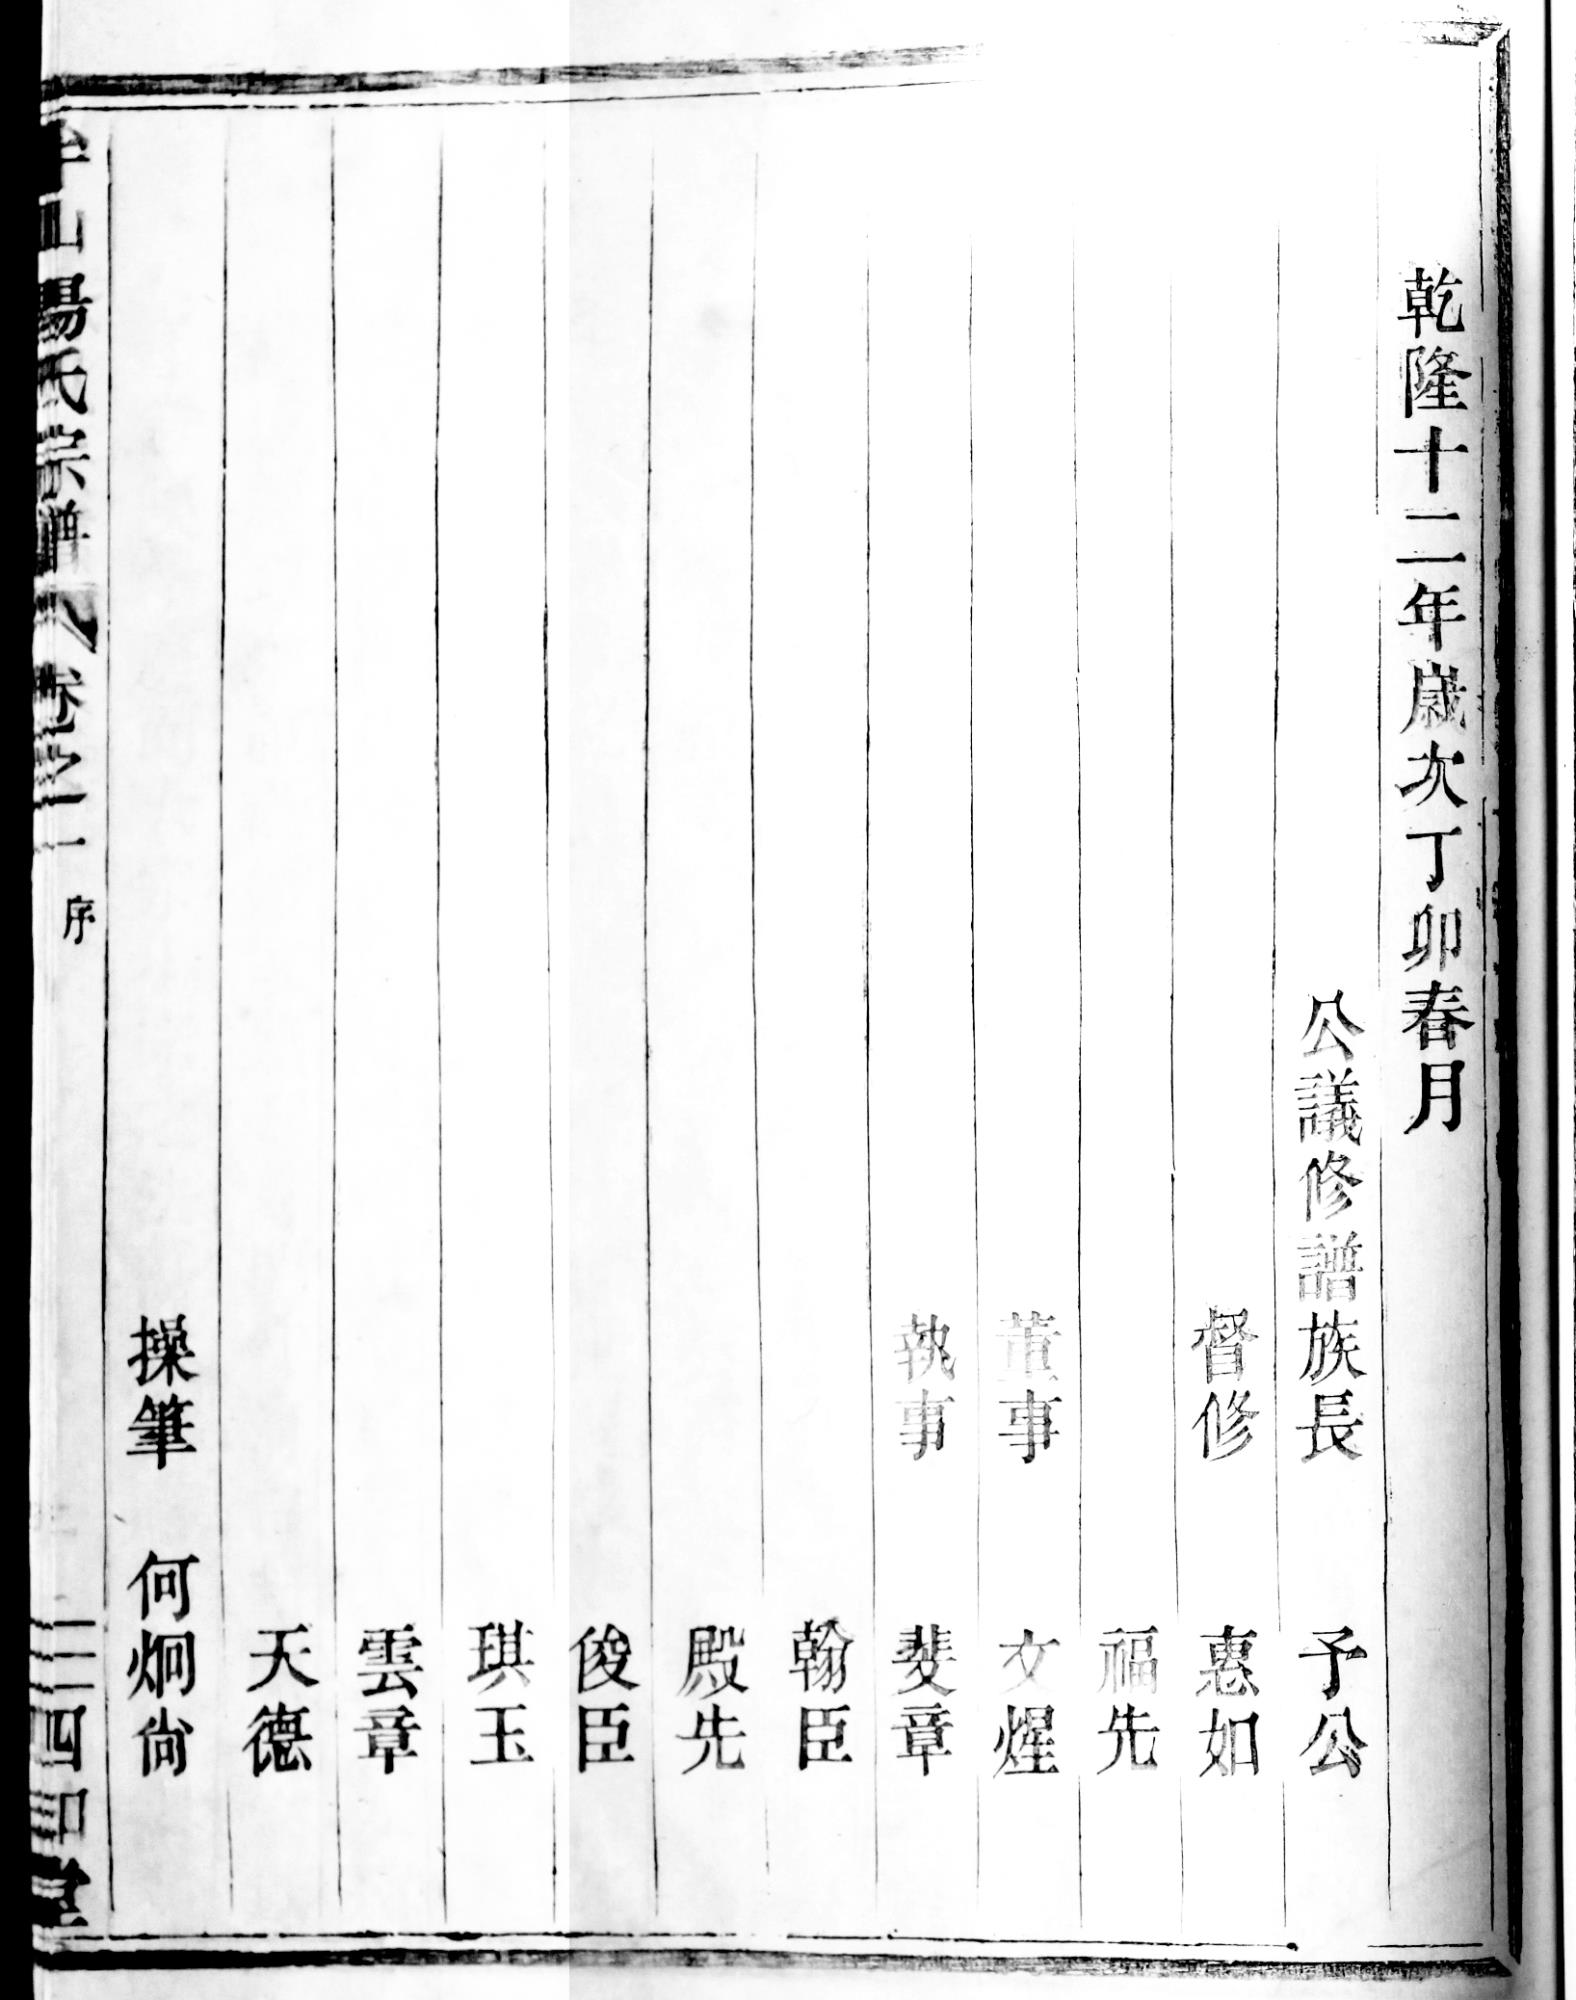 乾隆十二年歲次丁卯春月
公議修譜族長 予公
督修 惠如
福先
董事 文煋
執事 斐章
翰臣
殿先
俊臣
琪玉
雲章
天德
操筆 何炯尙
山楊氏宗譜 卷之一 序 四知堂